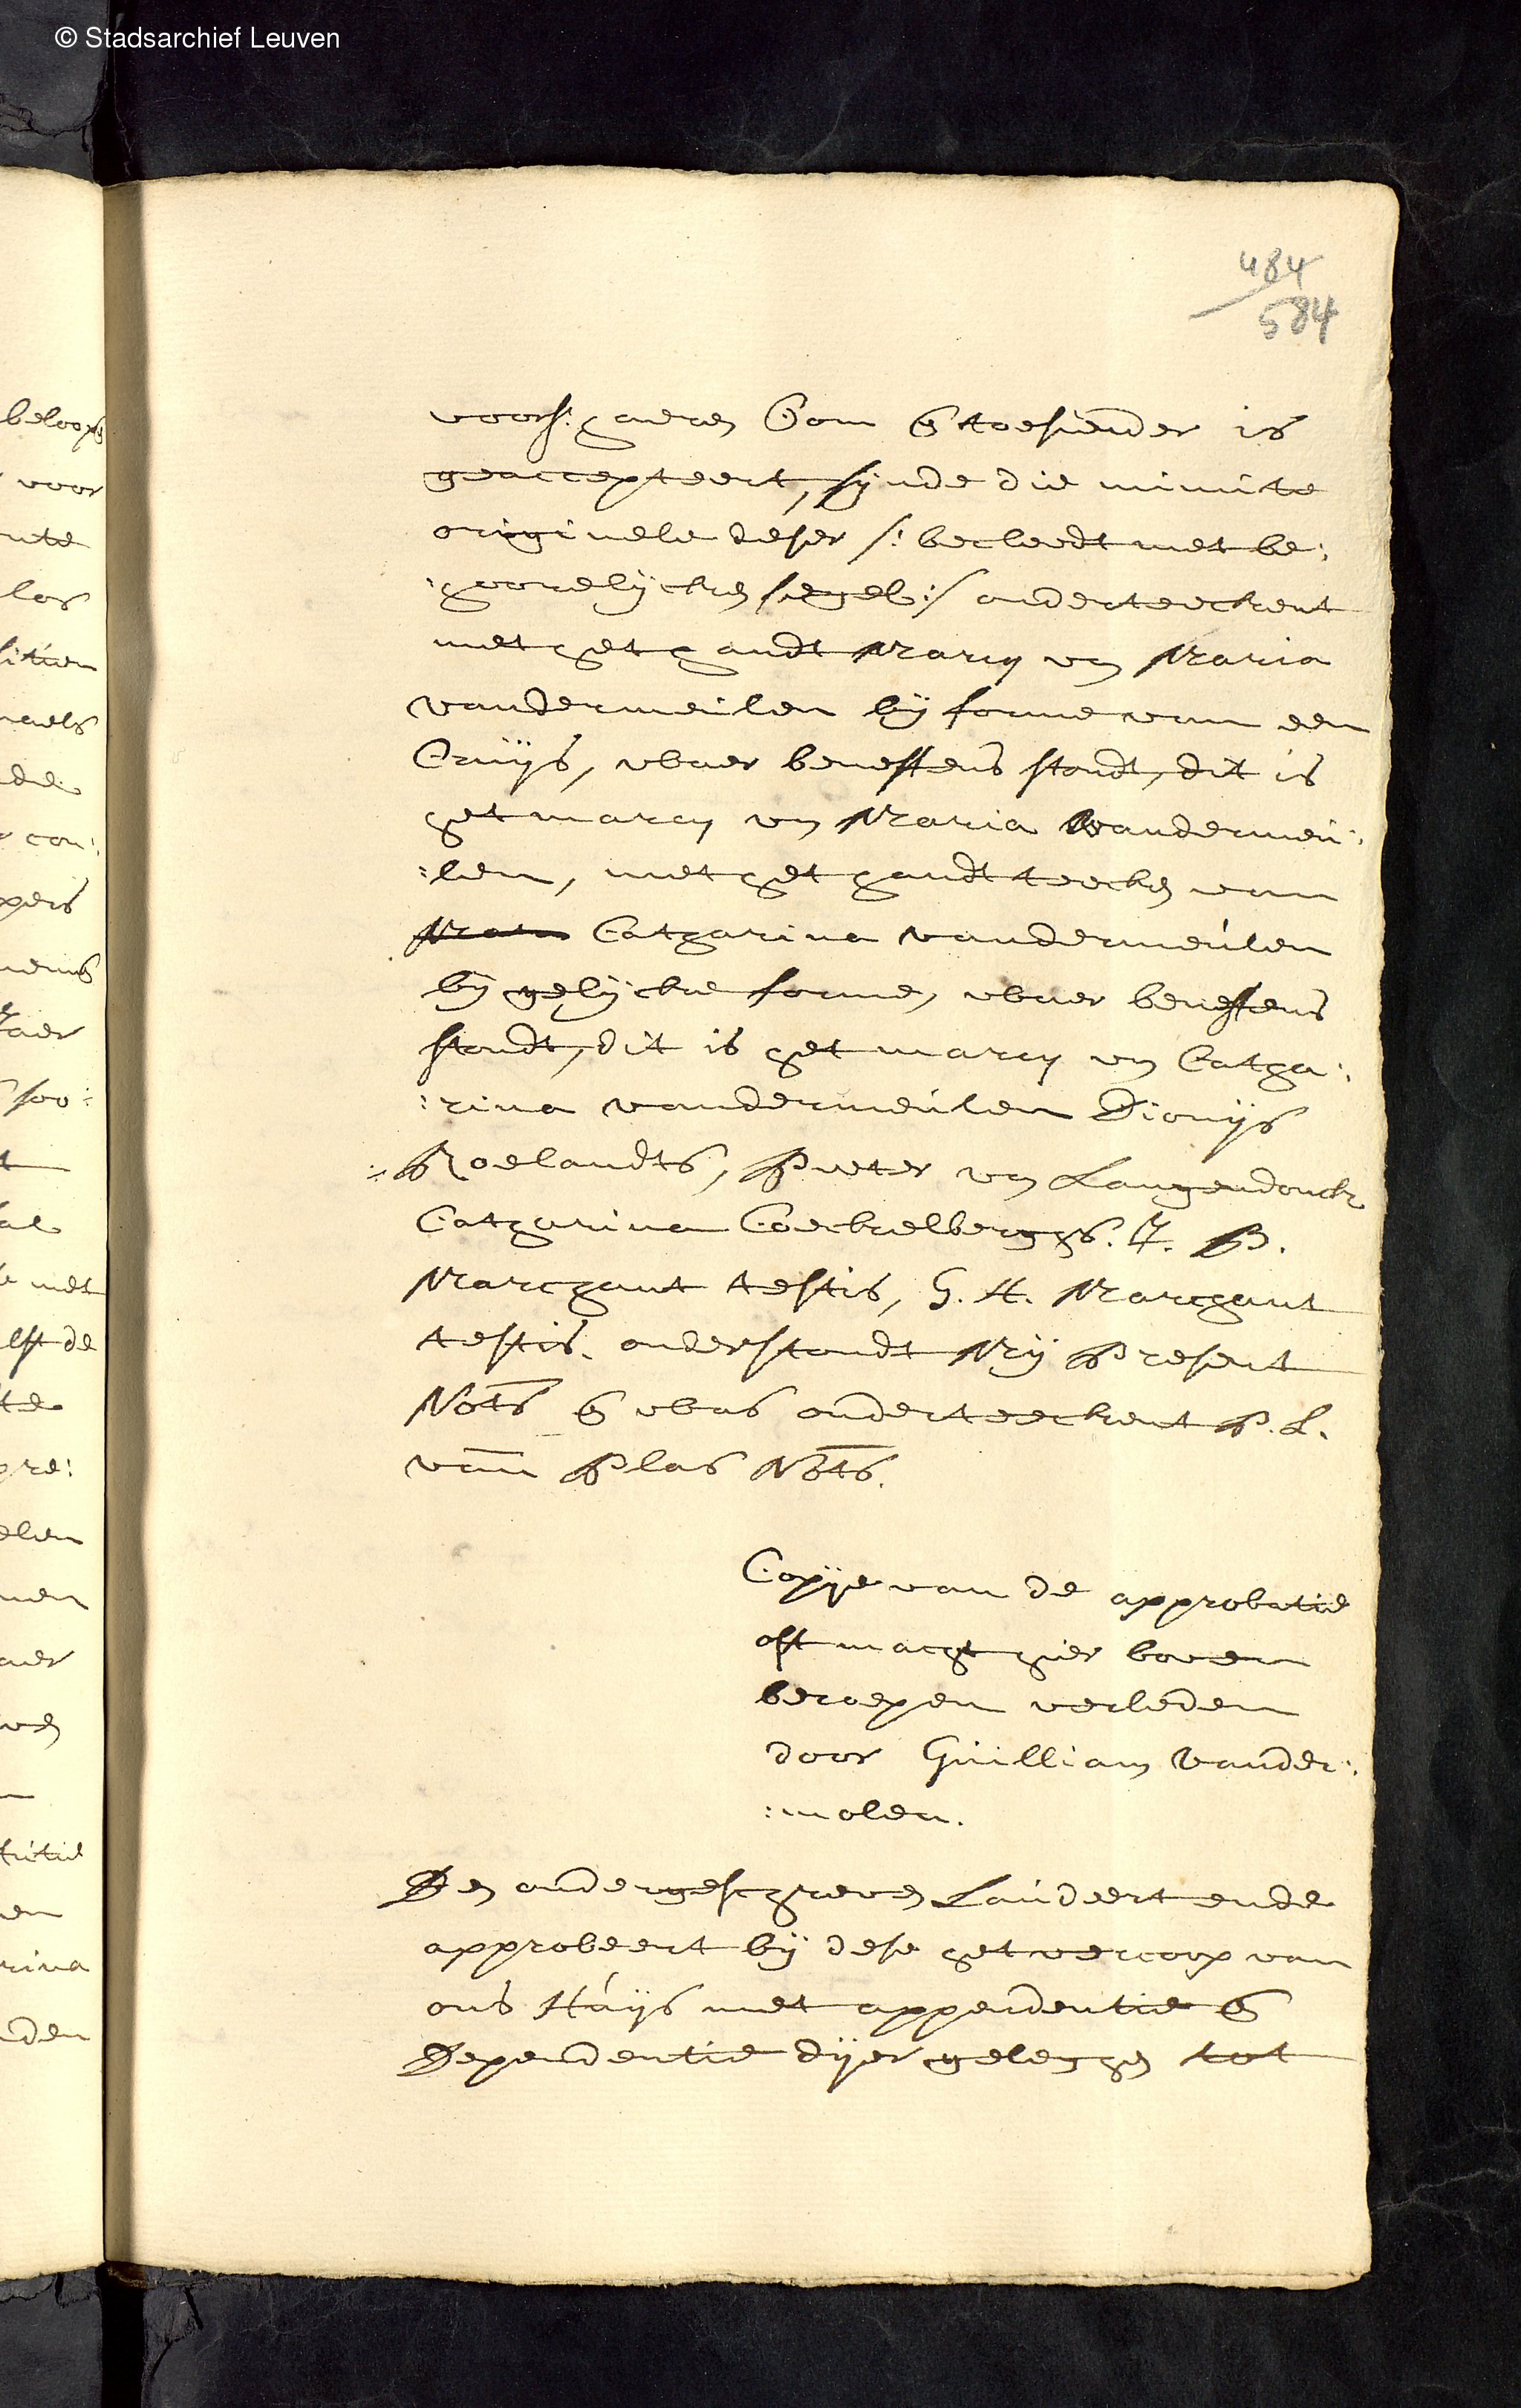 © Stadsarchief Leuven
484
584
voors: haeren Oom & toesiender is
geaccepteert, sijnde die minute
originele deser /: becleedt met be:
:hoorelijcken segel :/ onderteeckent
met het handt marcq van Maria
vandermeulen bij forme van een
Cruijs, waer beneffens stondt, dit is
het marcq van Maria Vandermeu:
:len, met het handt teecken van
Catharina vandermeulen
bij gelijcke forme, waer beneffens
stondt, dit is het marcq van Catha:
:rina vandermeulen Dionijs
Roelandts, Peeter van Langendonck
Catharina Coeckelberghs. J. P.
Marchant testis, G. H. Marchant
testis. onderstondt Mij Present
Nots & was onderteeckent P. L.
van Plas Nots.
Copije van de approbatie
oft macht hier boven
beroepen verleden
door Guilliam Vander:
:molen.
Den ondergeschreven Laudeert ende
approbeert bij dese het vercoop van
ons Huijs met appendentie &
Dependentie dijer geleghen tot
beloop
voor
nte
los
con:
soo:
met
elft de
te
pre:
rina
den